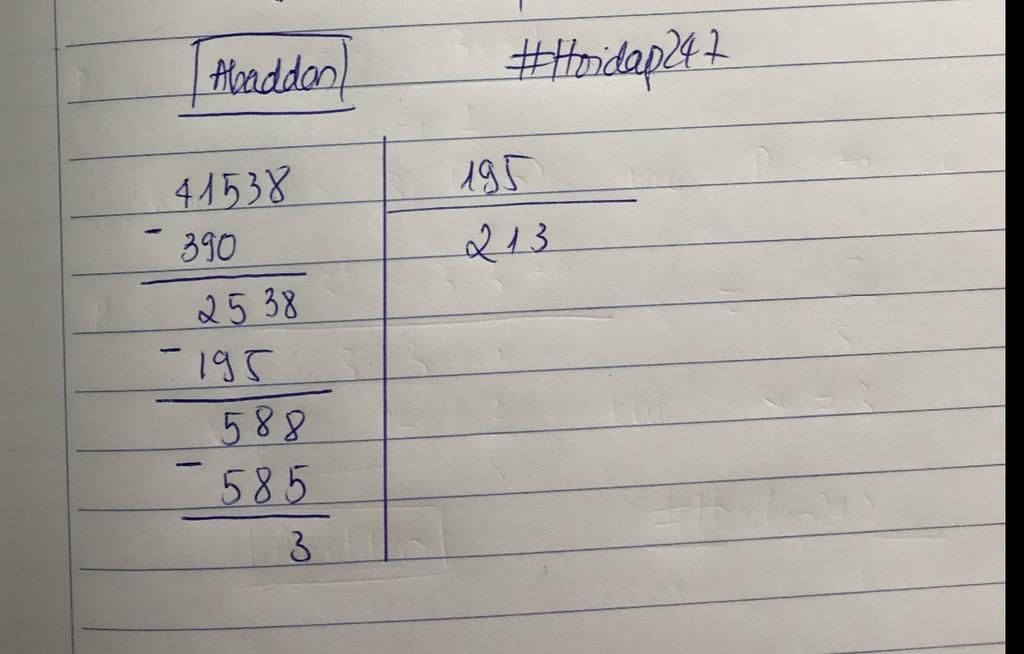 Abaddon #Hoidap247
41538 195
- 390 213
2538
- 195
588
- 585
3